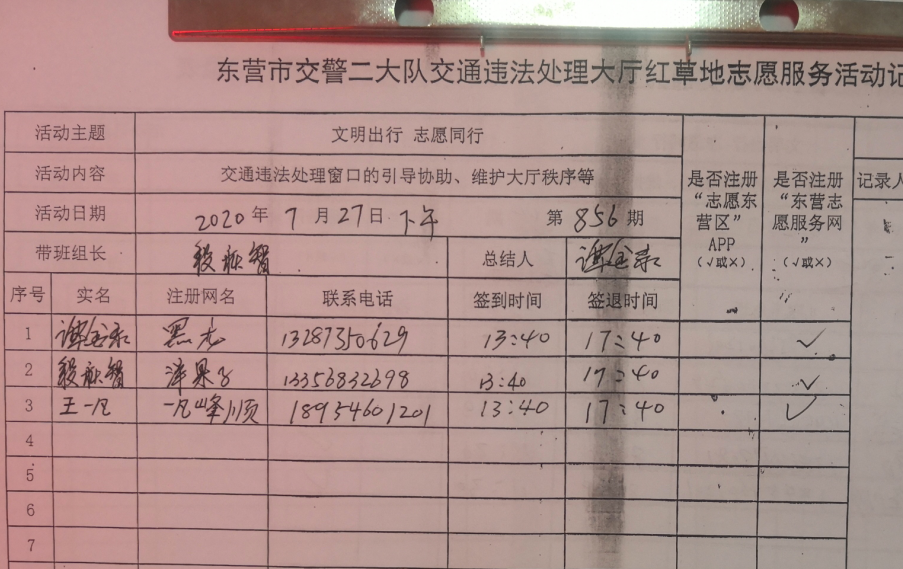 东营市交警二大队交通违法处理大厅红草地志愿服务活动记
活动主题 文明出行 志愿同行
活动内容 交通违法处理窗口的引导协助、维护大厅秩序等
活动日期 2020年7月27日下午 第856期
带班组长 总结人
是否注册“志愿东营区”APP(√或×)
是否注册“东营志愿服务网”(√或×)
记录人
序号 实名 注册网名 联系电话 签到时间 签退时间
1 13287350629 13:40 17:40 √
2 泽果子 13356832698 13:40 17:40 √
3 王一凡 一凡峰顺 18954601201 13:40 17:40 √
4
5
6
7